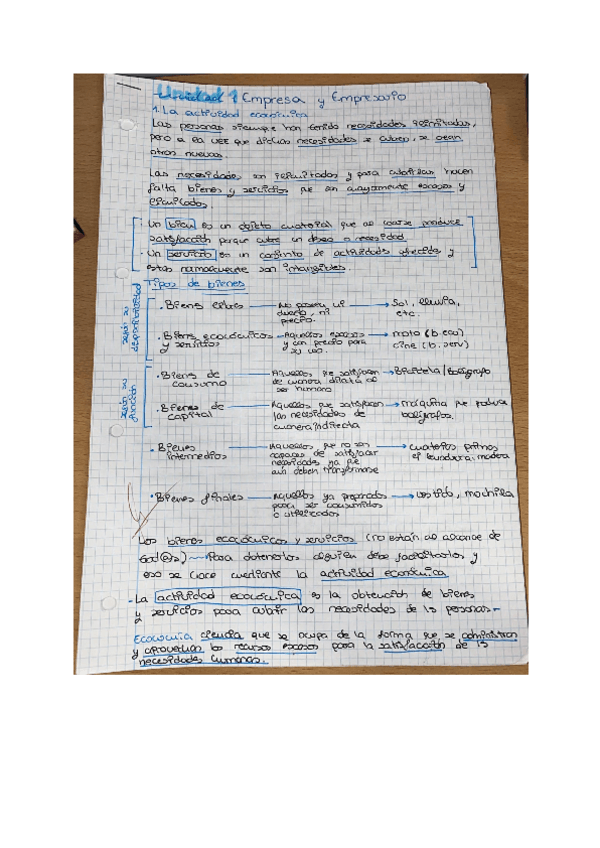 Unidad 1 Empresa y Empresario
1. La actividad económica
Las personas siempre han tenido necesidades ilimitadas,
pero a la vez que dichas necesidades se cubren, se crean
otras nuevas.
Las necesidades son ilimitadas y para cubrirlas hacen
falta bienes y servicios que son mayormente escasos y
limitados.
· Un bien es un objeto material que al usarse produce
satisfacción porque cubre un deseo o necesidad.
· Un servicio es un conjunto de actividades ofrecida y
estas normalmente son intangibles.
Tipos de bienes
según su disponibilidad
· Bienes libres — No poseen ni dueño, ni precio. → Sol, lluvia, etc.
· Bienes económicos y servicios — Aquellos escasos y con precio para su uso. → moto (b. eco) cine (b. serv)
según su función
· Bienes de consumo — Aquellos que satisfacen de manera directa al ser humano → Bicicleta / bolígrafo
· Bienes de capital — Aquellos que satisfacen las necesidades de manera indirecta → máquina que produce bolígrafos.
· Bienes intermedios — Aquellos que no son capaces de satisfacer necesidades ya que aún deben transformarse → materias primas ej madera
· Bienes finales — Aquellos ya preparados para ser consumidos o utilizados → vestido, mochila
Los bienes económicos y servicios (no están al alcance de
tod@s) → Para obtenerlos alguien debe facilitarlos y
eso se hace mediante la actividad económica
- La actividad económica es la obtención de bienes
y servicios para cubrir las necesidades de ls personas -
Economía ciencia que se ocupa de la forma que se administran
y aprovechan los recursos escasos para la satisfacción de ls
necesidades humanas.